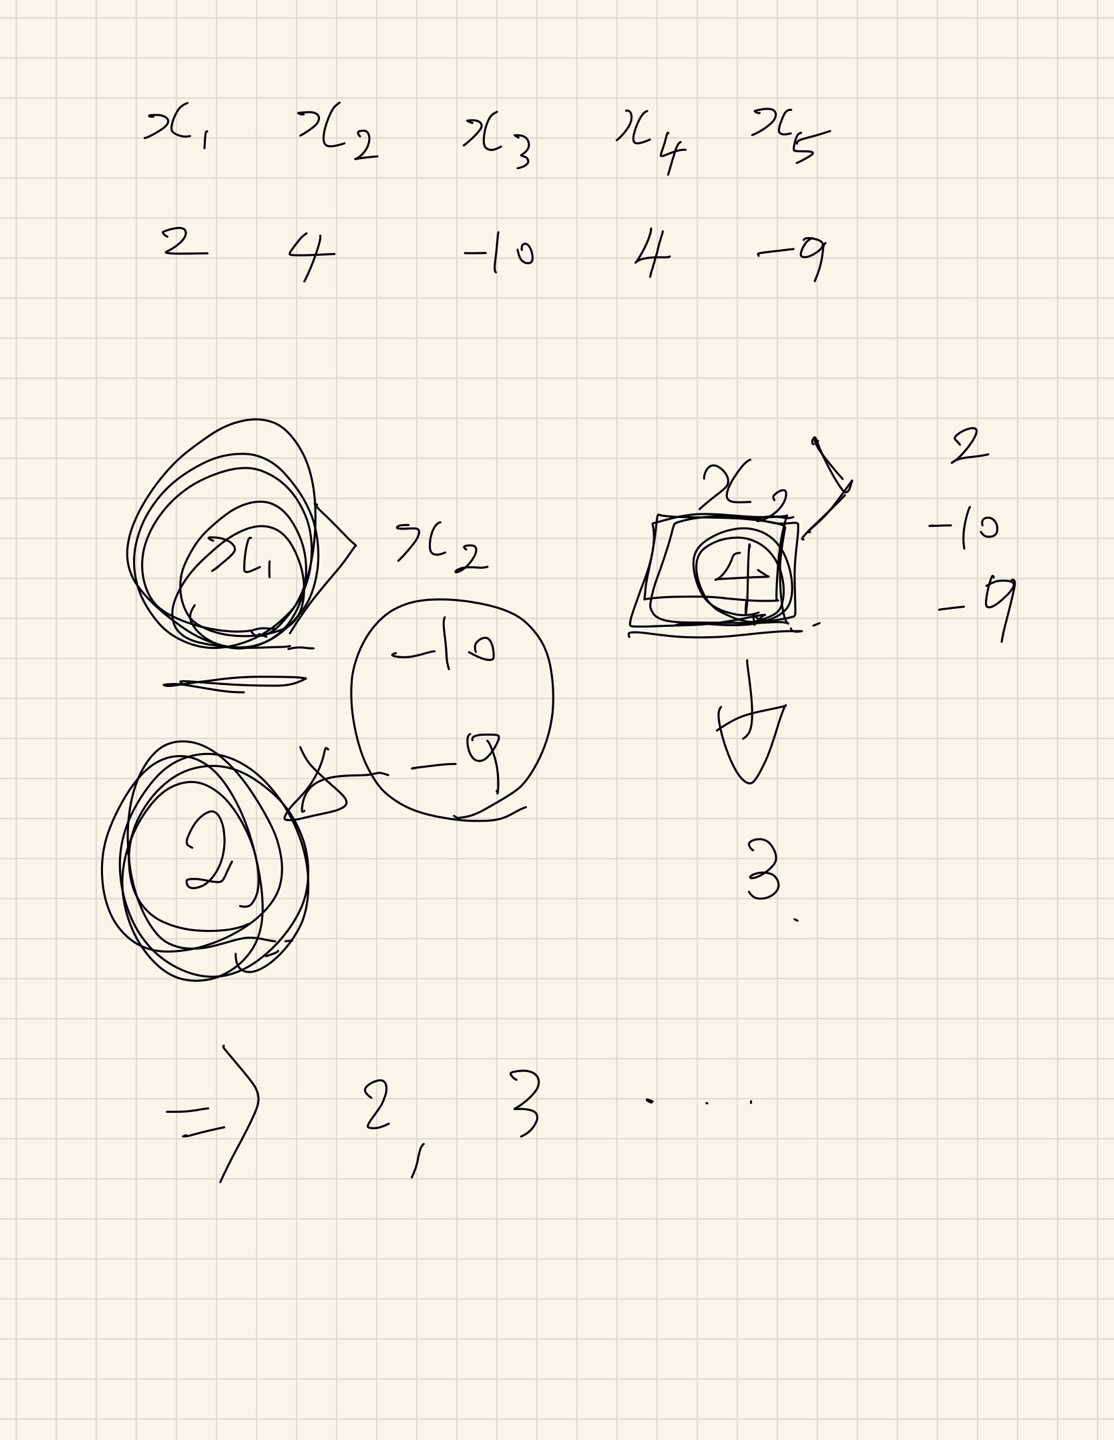 x₁ x₂ x₃ x₄ x₅
2 4 -10 4 -9
x₁ > x₂
-10
-9
2
x₂ >
4
2
-10
-9
3.
=> 2, 3 . . .